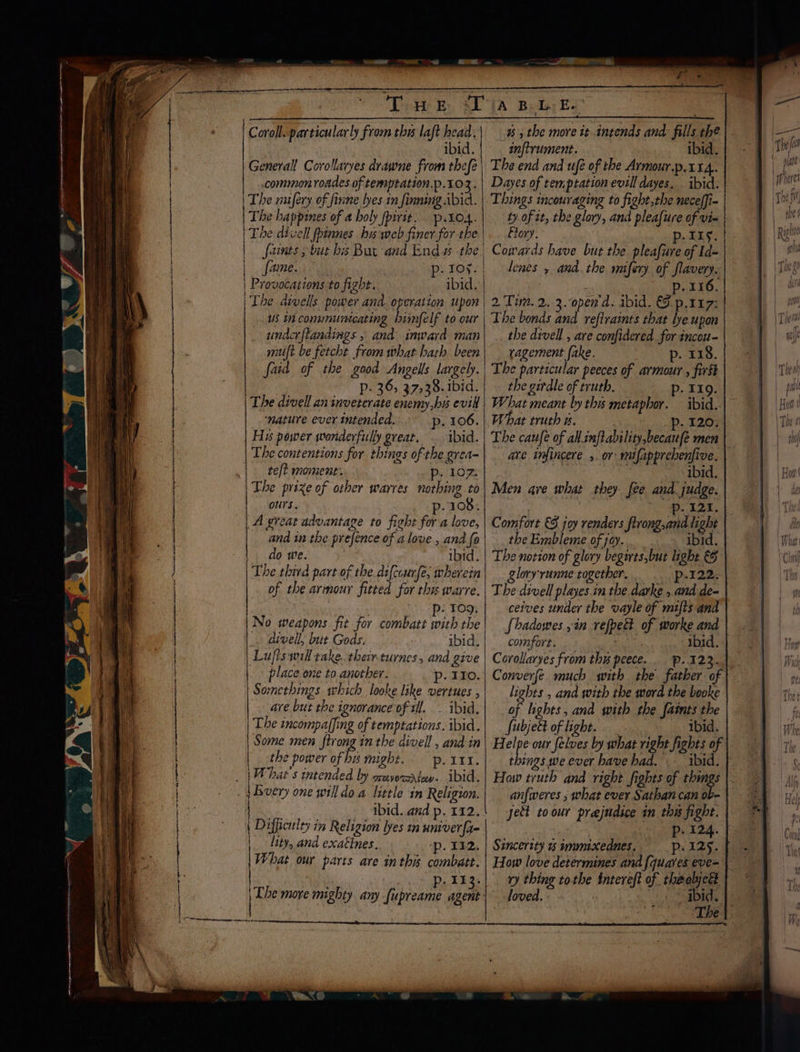 THE TABLE.
Coroll. particularly from this last head.
ibid.
Generall Corollaryes drawne from these
common roades of temptation.p.103.
The misery of sinne lyes in sinning.ibid.
The happines of a holy spirit. p.104.
The divell spinnes his web finer for the
saints ; but his But and End is the
same. p. 105.
Provocations to fight. ibid.
The divells power and operation upon
us in communicating himself to our
understandings , and inward man
must be fetcht from what hath been
said of the good Angells largely.
p. 36, 37,38. ibid.
The divell an inveterate enemy,his evill
nature ever intended. p. 106.
His power wonderfully great. ibid.
The contentions for things of the grea-
test moment. p. 107.
The prize of other warres nothing to
ours. p. 108.
A great advantage to fight for a love,
and in the presence of a love , and so
do we. ibid.
The third part of the discourse, wherein
of the armour fitted for this warre.
p. 109.
No weapons fit for combatt with the
divell, but Gods. ibid.
Lusts will take their turnes , and give
place one to another. p. 110.
Somethings which looke like vertues ,
are but the ignorance of ill. ibid.
The incompassing of temptations. ibid.
Some men strong in the divell , and in
the power of his might. p. 111.
What's intended by ibid.
Every one will do a little in Religion.
ibid. and p. 112.
Difficulty in Religion lyes in universa-
lity, and exactnes. p. 112.
What our parts are in this combatt.
p. 113.
The more mighty any supreame agent
is , the more it intends and fills the
instrument. ibid.
The end and use of the Armour.p.114.
Dayes of temptation evill dayes. ibid.
Things incouraging to fight,the necessi-
ty of it, the glory, and pleasure of vi-
ctory. p. 115.
Cowards have but the pleasure of Id-
lenes , and the misery of slavery.
p. 116.
2 Tim. 2. 3. open'd. ibid. & p.117.
The bonds and restraints that lye upon
the divell , are considered for incou-
ragement sake. p. 118.
The particular peeces of armour , first
the girdle of truth. p. 119.
What meant by this metaphor. ibid.
What truth is. p. 120.
The cause of all instability,because men
are insincere , or misapprehensive.
ibid.
Men are what they see and judge.
p. 121.
Comfort & joy renders strong,and light
the Embleme of joy. ibid.
The notion of glory begirts,but light &
glory runne together. p.122.
The divell playes in the darke , and de-
ceives under the vayle of mists and
shadowes ,in respect of worke and
comfort. ibid.
Corollaryes from this peece. p. 123.
Converse much with the father of
lights , and with the word the booke
of lights , and with the saints the
subject of light. ibid.
Helpe our selves by what right sights of
things we ever have had. ibid.
How truth and right sights of things
answeres , what ever Sathan can ob-
ject to our prejudice in this fight.
p. 124.
Sincerity is immixednes. p. 125.
How love determines and squares eve-
ry thing to the interest of the object
loved. ibid.
The